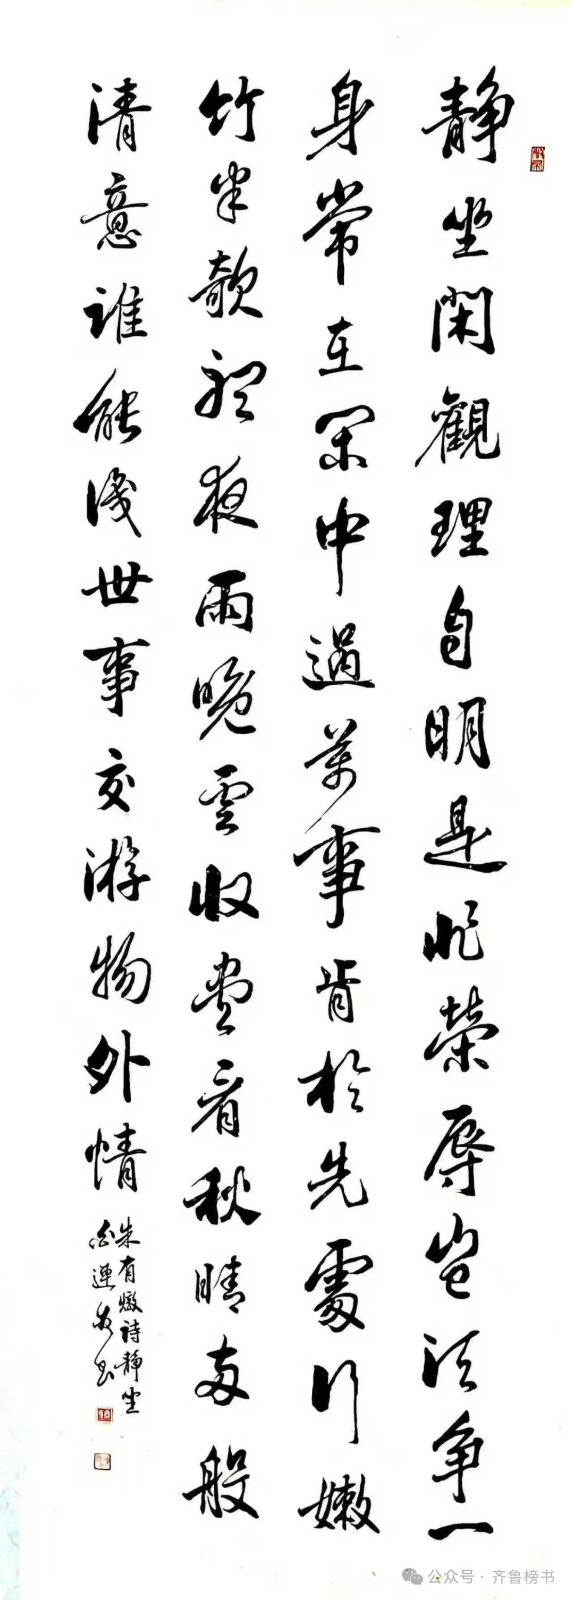 静坐閑觀理自明是非榮辱岂须争一
身常在閑中過萬事肯於先處行嫩
竹半欹聽夜雨晚雲收盡看秋晴両般
清意誰能識世事交游物外情
朱有燉詩静坐
連书
公众号·齐鲁榜书